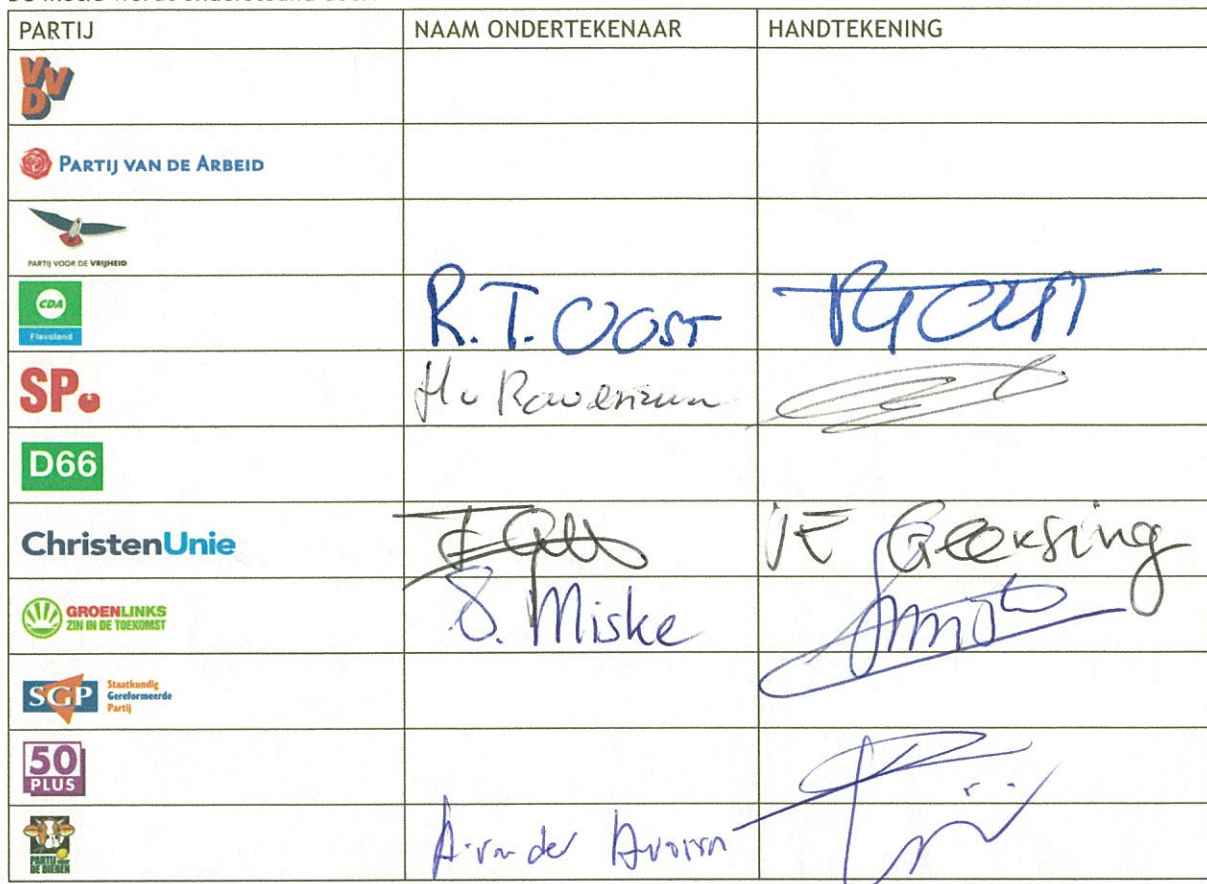 PARTIJ NAAM ONDERTEKENAAR HANDTEKENING
VVD
PARTIJ VAN DE ARBEID
PARTIJ VOOR DE VRIJHEID
CDA
Flevoland
R.T. OOST
SP.
D66
ChristenUnie
JE Geersing
GROENLINKS
ZIN IN DE TOEKOMST
S. Miske
SGP
Staatkundig
Gereformeerde
Partij
50
PLUS
PARTIJ voor
DE DIEREN
A. van der